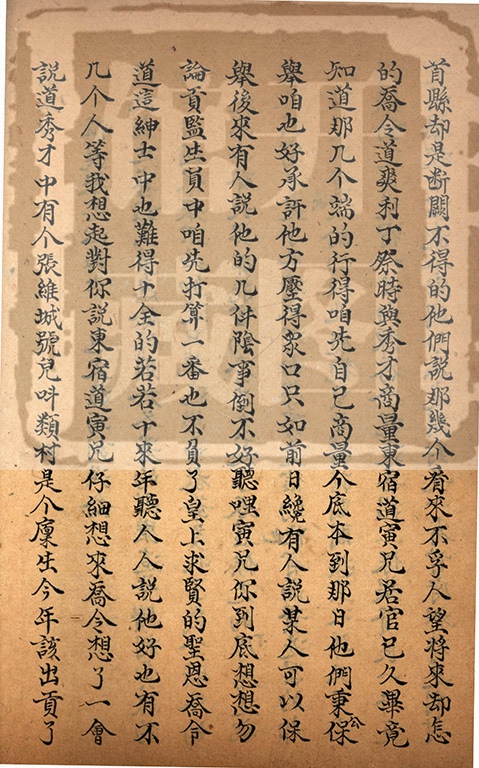 首縣却是断闗不得的他們説那幾个看來不孚人望将來却怎
的喬令道爽利丁祭時與秀才商量東宿道寅兄居官已久畢竟
知道那几个端的行得咱先自己商量个底本到那日他們秉公保
舉咱也好承許他方壓得衆口只如前日纔有人説某人可以保
舉後來有人説他的几件隂事倒不好聽哩寅兄你到底想想勿
論貢監生員中咱先打算一番也不負了皇上求賢的聖恩喬令
道這紳士中也難得十全的若若十來年聽人人説他好也有不
几个人等我想起對你説東宿道寅兄仔細想來喬令想了一會
説道秀才中有个張維城號兒呌類村是个廪生今年該出貢了